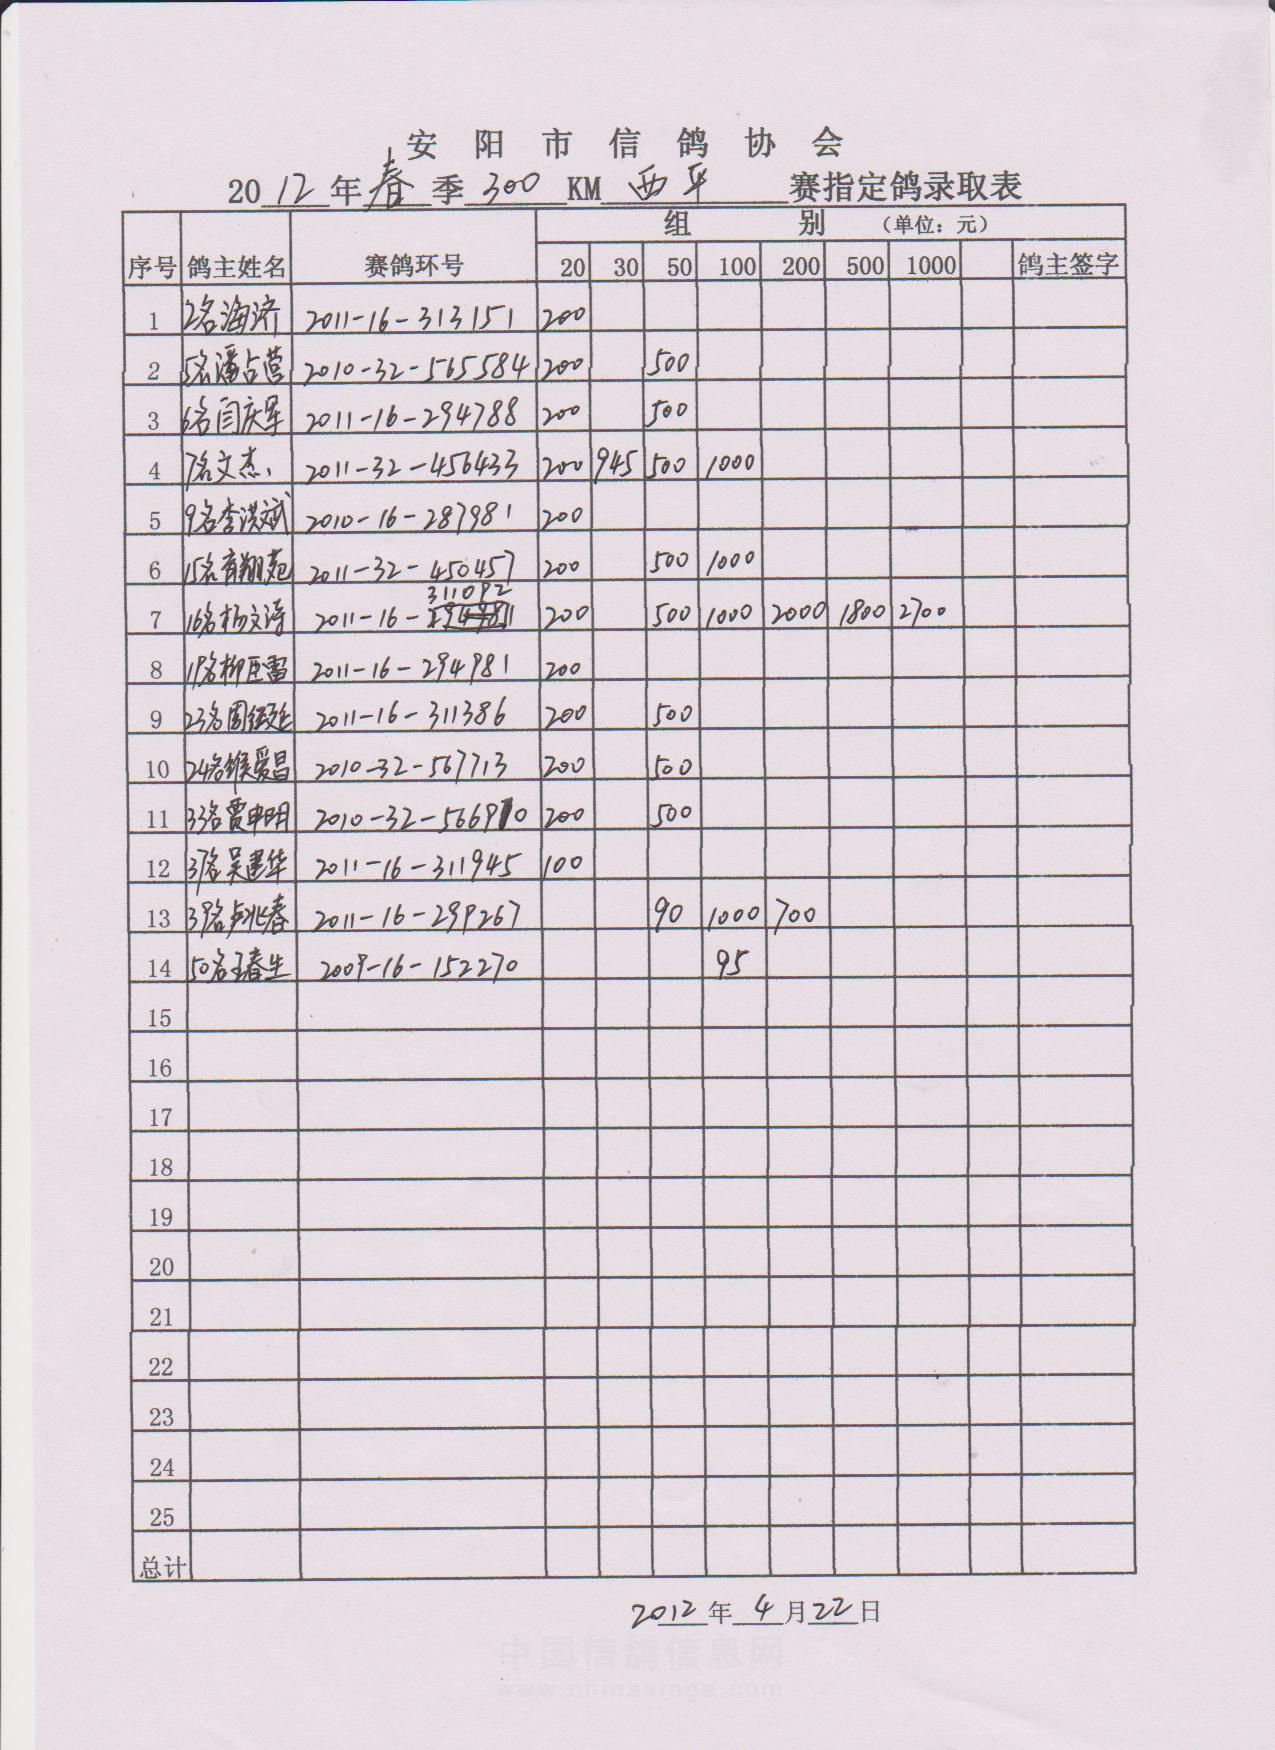 安阳市信鸽协会
2012年春季300KM西平赛指定鸽录取表
组别（单位：元）
序号 鸽主姓名 赛鸽环号 20 30 50 100 200 500 1000 鸽主签字
1 2名海济 2011-16-313151 200
2 5名潘占营 2010-32-565584 200 500
3 6名闫庆军 2011-16-294788 200 500
4 7名文杰 2011-32-456433 200 945 500 1000
5 9名李洪斌 2010-16-287981 200
6 15名育翔苑 2011-32-450457 200 500 1000
7 16名杨文涛 2011-16-311092 200 500 1000 2000 1800 2700
8 19名柳臣雷 2011-16-294981 200
9 23名周 2011-16-311386 200 500
10 24名侯爱昌 2010-32-567713 200 500
11 33名贾申明 2010-32-566910 200 500
12 37名吴建华 2011-16-311945 100
13 39名卢兆春 2011-16-299267 90 1000 700
14 50名王春生 2009-16-152270 95
15
16
17
18
19
20
21
22
23
24
25
总计
2012年4月22日
中国信鸽信息网
www.chinaxinge.com